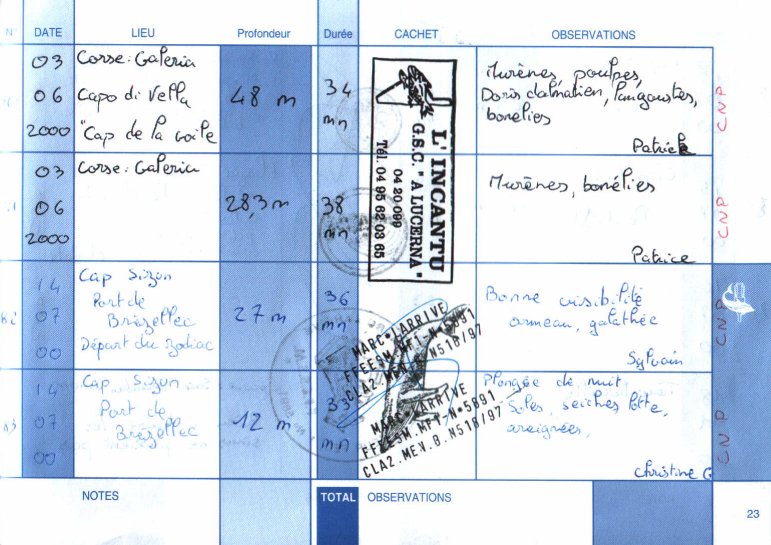 N° DATE LIEU Profondeur Durée CACHET OBSERVATIONS
03 Corse: Galeria
06 Capo di Vella 48 m 34 mn Murènes, poulpes,
2000 "Cap de la voile Doris dalmatien, langoustes,
bonélies
Patrick
CNP
L'INCANTU
G.S.C. "A LUCERNA"
04 20 099
Tél. 04 95 62 03 65
03 Corse: Galeria
06 28,3 m 38 mn Murènes, bonélies
2000
Patrice
CNP
14 Cap Sizun
07 Port de
Brézellec 27 m 36 mn Bonne visibilité
00 Départ du Zodiac armeau, galathée
Sylvain
CNP
MARC LARRIVE
FFESSM.MF1-N°5891
CLA2.MEV.B.N518/97
14 Cap Sizun
07 Port de
Brézellec 12 m 33 mn Plongée de nuit
00 Soles, seiches,
araignées,
Christine G
CNP
MARC LARRIVE
FFESSM.MF1-N°5891
CLA2.MEV.B.N518/97
NOTES TOTAL OBSERVATIONS
23